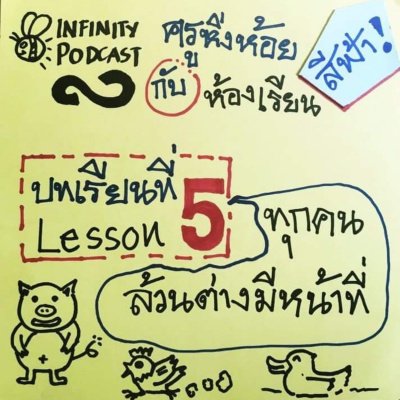 INFINITY
PODCAST
ครูหิ่งห้อย
กับ ห้องเรียน
สีฟ้า!
บทเรียนที่
Lesson 5
ทุกคน
ล้วนต่างมีหน้าที่